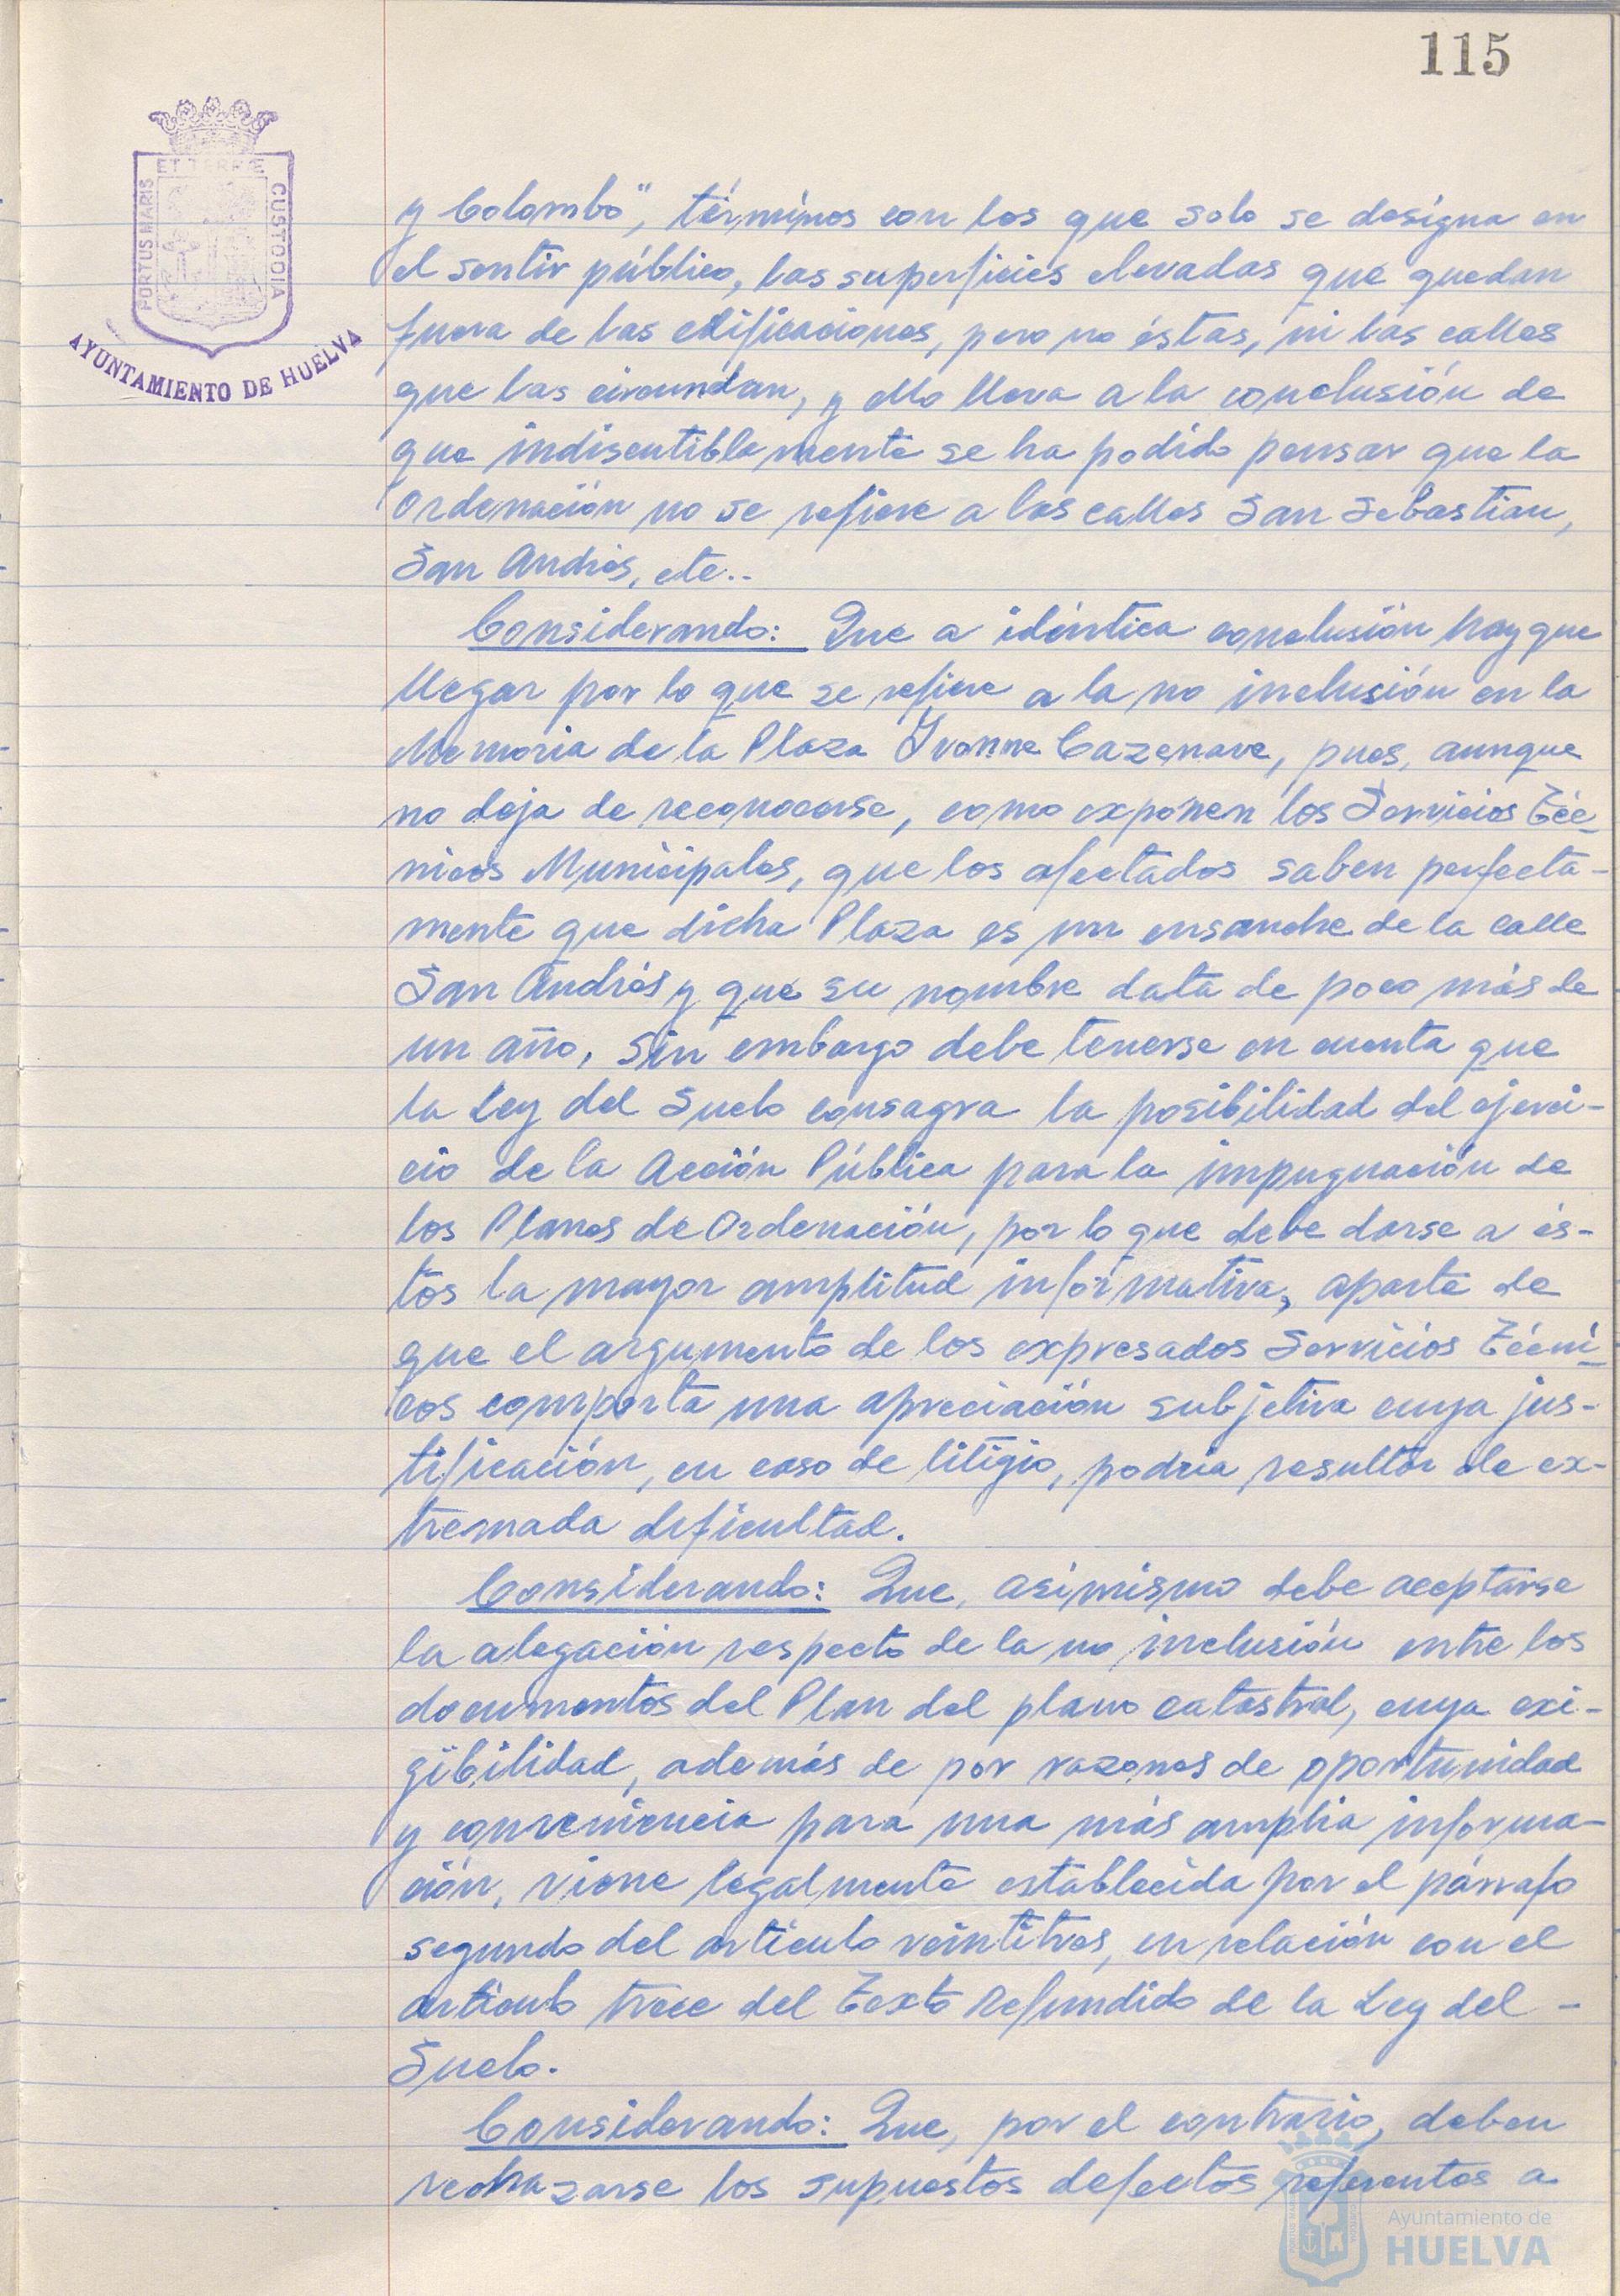 115
ET TERRÆ
PORTUS MARIS
CUSTODIA
AYUNTAMIENTO DE HUELVA
y Colombo", términos con los que solo se designa en
el sentir público, las superficies elevadas que quedan
fuera de las edificaciones, pero no éstas, ni las calles
que las circundan, y ello lleva a la conclusión de
que indiscutiblemente se ha podido pensar que la
Ordenación no se refiere a las calles San Sebastian,
San Andrés, etc..
Considerando: Que a idéntica conclusión hay que
llegar por lo que se refiere a la no inclusión en la
Memoria de la Plaza Ivonne Cazenave, pues, aunque
no deja de reconocerse, como exponen los Servicios Téc-
nicos Municipales, que los afectados saben perfecta-
mente que dicha Plaza es un ensanche de la calle
San Andrés y que su nombre data de poco más de
un año, sin embargo debe tenerse en cuenta que
la Ley del Suelo consagra la posibilidad del ejerci-
cio de la Acción Pública para la impugnación de
los Planes de Ordenación, por lo que debe darse a és-
tos la mayor amplitud informativa, aparte de
que el argumento de los expresados Servicios Técni-
cos comporta una apreciación subjetiva cuya jus-
tificación, en caso de litigio, podria resultar de ex-
tremada dificultad.
Considerando: Que, asimismo debe aceptarse
la alegación respecto de la no inclusión entre los
documentos del Plan del plano catastral, cuya exi-
gibilidad, además de por razones de oportunidad
y conveniencia para una más amplia informa-
ción, viene legalmente establecida por el párrafo
segundo del articulo veintitres, en relación con el
articulo trece del Texto Refundido de la Ley del -
Suelo.
Considerando: Que, por el contrario, deben
rechazarse los supuestos defectos referentes a
Ayuntamiento de
HUELVA